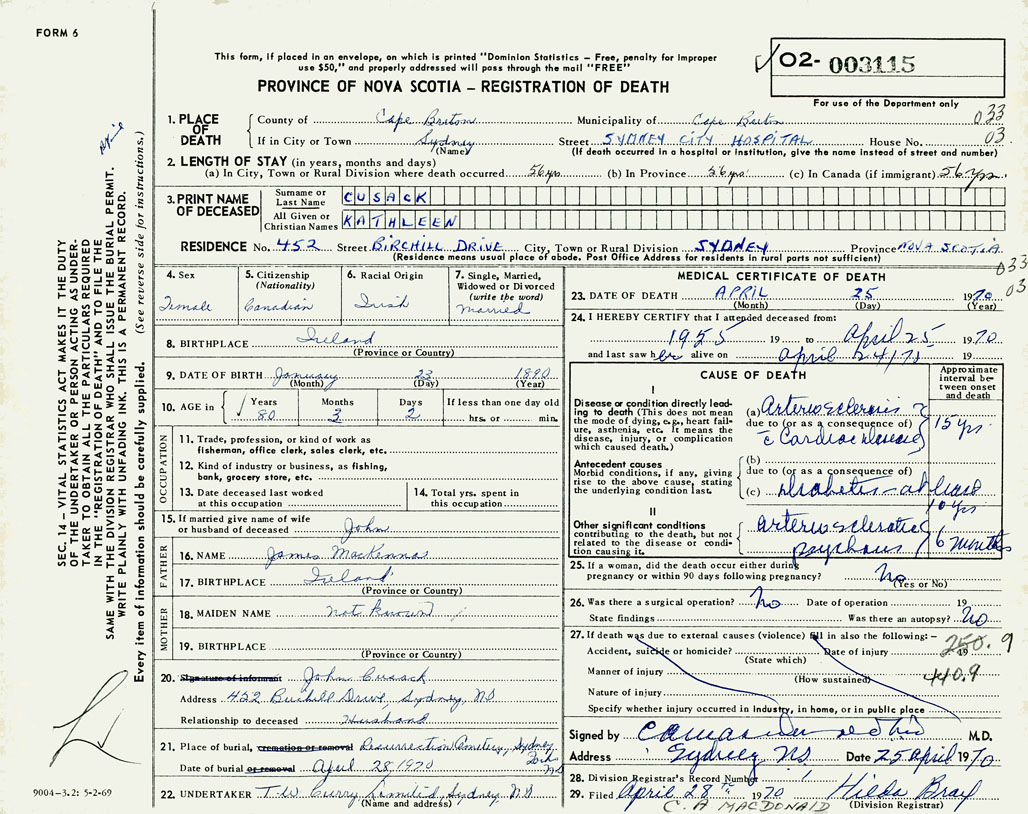 FORM 6
This form, if placed in an envelope, on which is printed "Dominion Statistics – Free, penalty for improper
use $50," and properly addressed will pass through the mail "FREE"
PROVINCE OF NOVA SCOTIA – REGISTRATION OF DEATH
02- 003115
For use of the Department only
033
03
1. PLACE OF DEATH
County of Cape Breton Municipality of Cape Breton
If in City or Town Sydney Street SYDNEY CITY HOSPITAL House No.
(Name) (If death occurred in a hospital or institution, give the name instead of street and number)
2. LENGTH OF STAY (in years, months and days)
(a) In City, Town or Rural Division where death occurred 56 yrs (b) In Province 56 yrs. (c) In Canada (if immigrant) 56 yrs.
3. PRINT NAME OF DECEASED
Surname or Last Name CUSACK
All Given or Christian Names KATHLEEN
RESIDENCE No. 452 Street BIRCHILL DRIVE City, Town or Rural Division SYDNEY Province NOVA SCOTIA
(Residence means usual place of abode. Post Office Address for residents in rural parts not sufficient)
033
03
4. Sex Female
5. Citizenship (Nationality) Canadian
6. Racial Origin Irish
7. Single, Married, Widowed or Divorced (write the word) Married
8. BIRTHPLACE Ireland
(Province or Country)
9. DATE OF BIRTH January 23 1890
(Month) (Day) (Year)
10. AGE in Years 80 Months 3 Days 2 If less than one day old
hrs. or min.
OCCUPATION
11. Trade, profession, or kind of work as
fisherman, office clerk, sales clerk, etc.
12. Kind of industry or business, as fishing,
bank, grocery store, etc.
13. Date deceased last worked
at this occupation
14. Total yrs. spent in
this occupation
15. If married give name of wife
or husband of deceased John
FATHER
16. NAME James MacKenna
17. BIRTHPLACE Ireland
(Province or Country)
MOTHER
18. MAIDEN NAME not known
19. BIRTHPLACE
(Province or Country)
20. Signature of informant John Cusack
Address 452 Birchill Drive, Sydney, NS
Relationship to deceased Husband
21. Place of burial, cremation or removal Resurrection Cemetery, Sydney
NS
Date of burial or removal April 28, 1970
22. UNDERTAKER T W Curry Limited, Sydney, NS
(Name and address)
MEDICAL CERTIFICATE OF DEATH
23. DATE OF DEATH APRIL 25 1970
(Month) (Day) (Year)
24. I HEREBY CERTIFY that I attended deceased from:
1955 19 to April 25, 1970
and last saw her alive on April 24/71 19
CAUSE OF DEATH
Approximate interval between onset and death
I
Disease or condition directly leading to death (This does not mean the mode of dying, e.g., heart failure, asthenia, etc. It means the disease, injury, or complication which caused death.)
(a) Arteriosclerosis
due to (or as a consequence of)
c Cardiac disease
15 yrs.
Antecedent causes
Morbid conditions, if any, giving rise to the above cause, stating the underlying condition last.
(b)
due to (or as a consequence of)
(c) Diabetes – at least
10 yrs
II
Other significant conditions
contributing to the death, but not related to the disease or condition causing it.
Arteriosclerotic
psychosis
6 months
25. If a woman, did the death occur either during
pregnancy or within 90 days following pregnancy? No
(Yes or No)
26. Was there a surgical operation? No Date of operation 19
State findings Was there an autopsy? No
27. If death was due to external causes (violence) fill in also the following: –
Accident, suicide or homicide? Date of injury 19
(State which)
250.9
Manner of injury
(How sustained)
440.9
Nature of injury
Specify whether injury occurred in industry, in home, or in public place
Signed by M.D.
Address Sydney NS Date 25 April 1970
28. Division Registrar's Record Number
29. Filed April 28th 1970 Hilda Bray
C. A MACDONALD (Division Registrar)
SEC. 14 – VITAL STATISTICS ACT MAKES IT THE DUTY
OF THE UNDERTAKER OR PERSON ACTING AS UNDER-
TAKER TO OBTAIN ALL THE PARTICULARS REQUIRED
IN THE "REGISTRATION OF DEATH" AND TO FILE THE
SAME WITH THE DIVISION REGISTRAR WHO SHALL ISSUE THE BURIAL PERMIT.
WRITE PLAINLY WITH UNFADING INK. THIS IS A PERMANENT RECORD.
Every item of information should be carefully supplied. (See reverse side for instructions.)
9004–3.2: 5-2-69